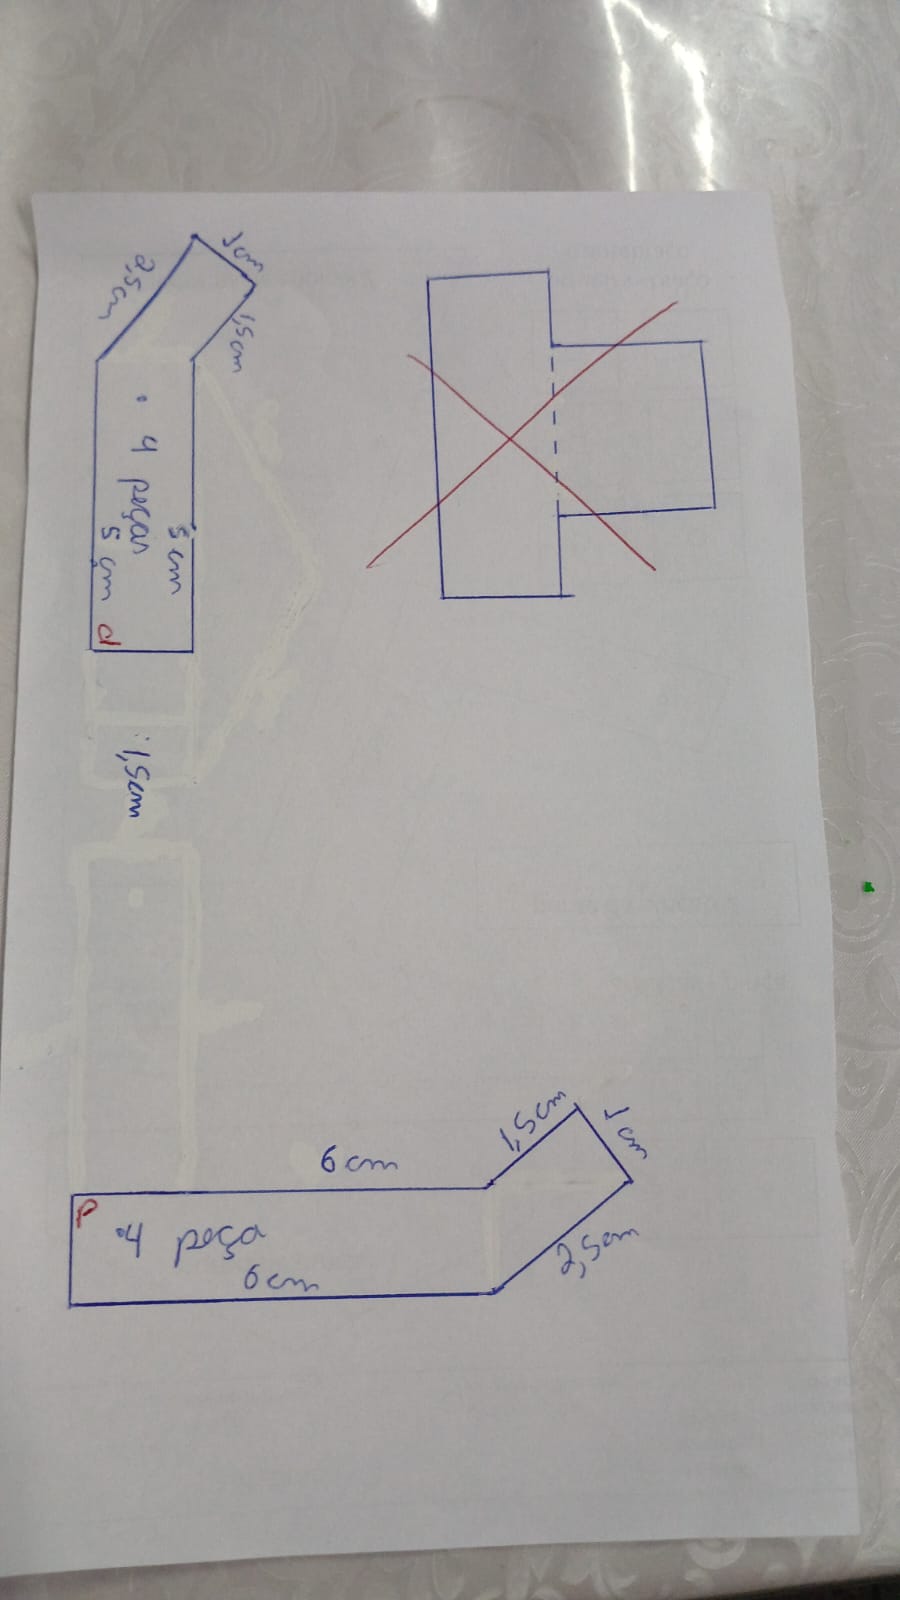 1cm
2,5cm
1,5cm
• 4 peças
5 cm
5 cm
d
1,5cm
1,5cm
1cm
6cm
•4 peça
6cm
2,5cm